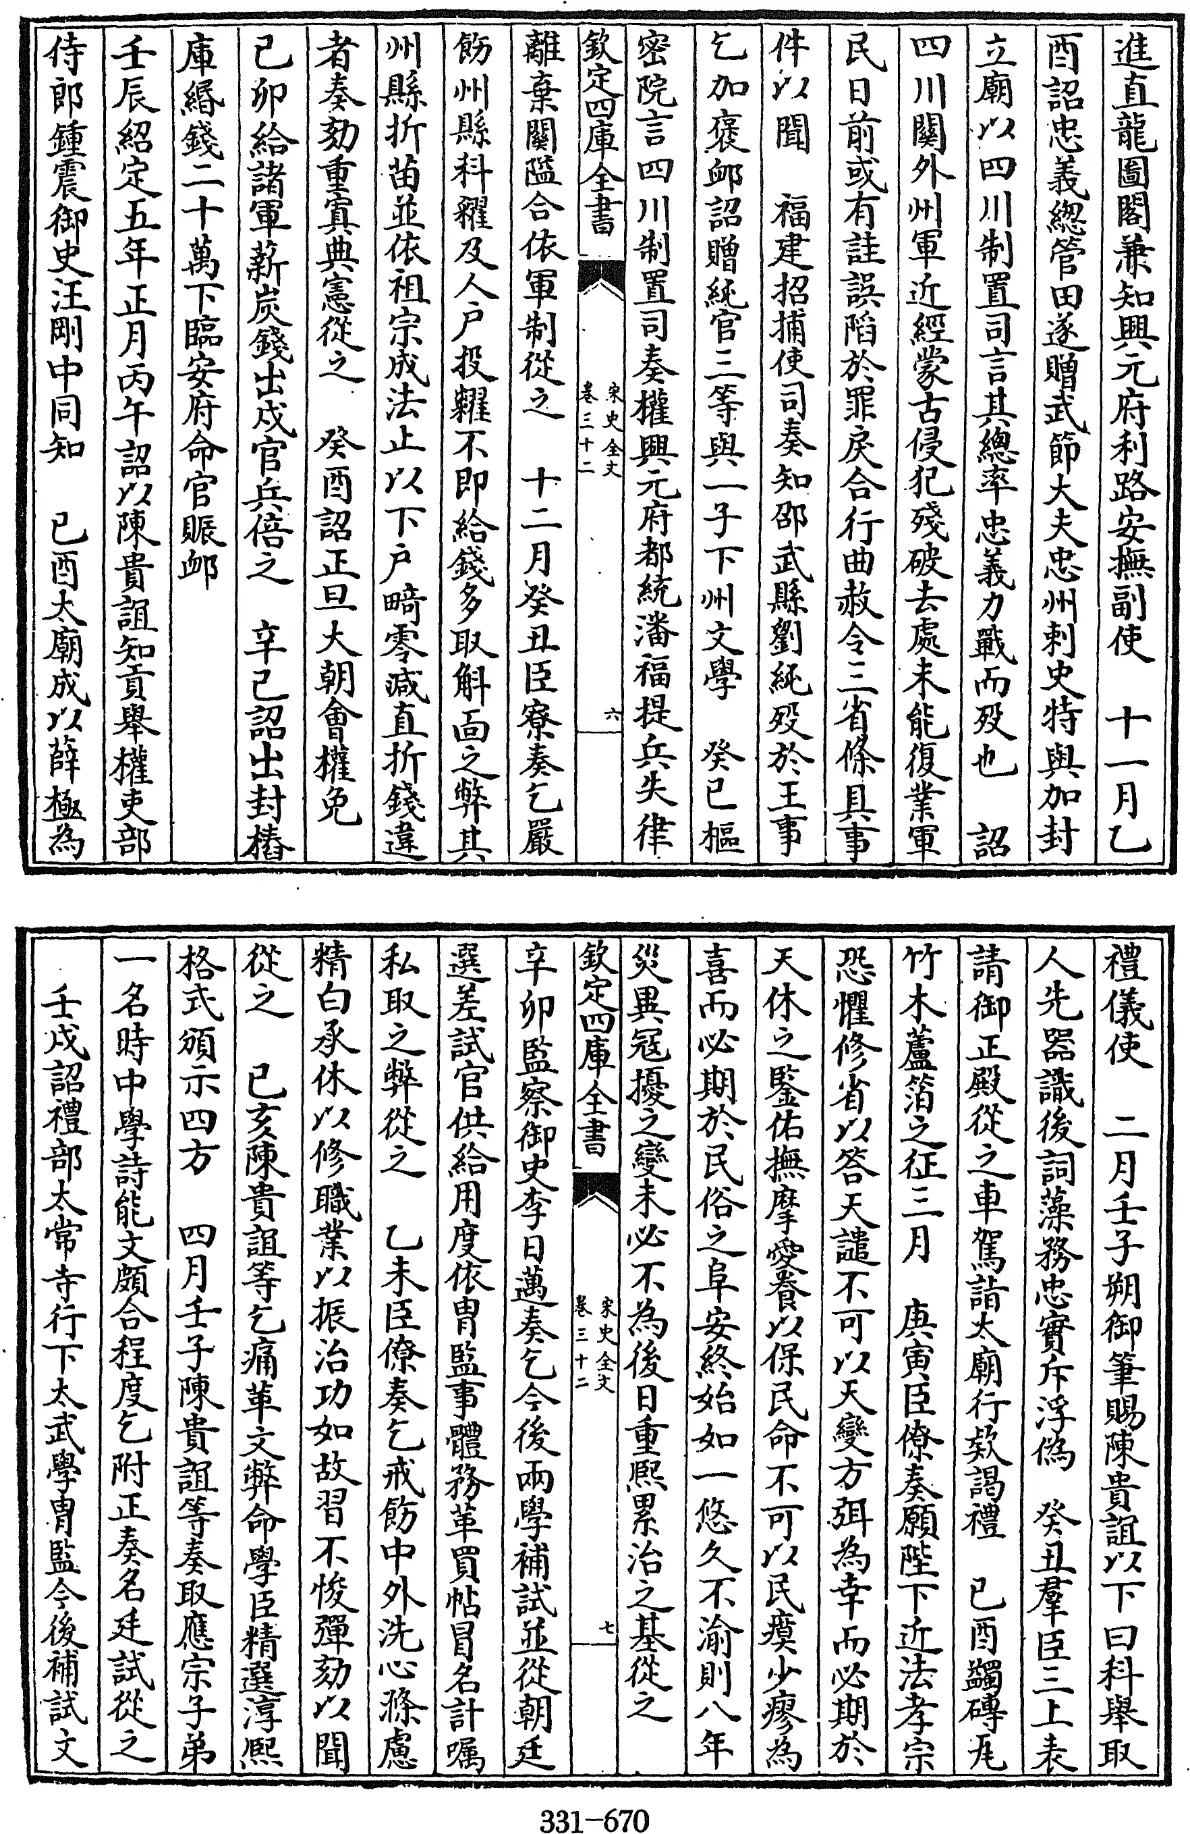 進直龍圖閣兼知興元府利路安撫副使　十一月乙
酉詔忠義總管田遂贈武節大夫忠州刺史特與加封
立廟以四川制置司言其總率忠義力戰而殁也　詔
四川關外州軍近經蒙古侵犯殘破去處未能復業軍
民日前或有詿誤陷於罪戾合行曲赦令三省條具事
件以聞　福建招捕使司奏知邵武縣劉純殁於王事
乞加褒䘏詔贈純官三等與一子下州文學　癸巳樞
密院言四川制置司奏權興元府都統潘福提兵失律
欽定四庫全書
宋史全文
卷三十二
六
離棄關隘合依軍制從之　十二月癸丑臣寮奏乞嚴
飭州縣科糴及人戶投糶不即給錢多取斛面之弊其
州縣折苗並依祖宗成法止以下戶畸零減直折錢違
者奏劾重寘典憲從之　癸酉詔正旦大朝會權免
己卯給諸軍薪炭錢出戍官兵倍之　辛巳詔出封樁
庫緡錢二十萬下臨安府命官賑䘏
壬辰紹定五年正月丙午詔以陳貴誼知貢舉權吏部
侍郎鍾震御史汪剛中同知　己酉太廟成以薛極為
禮儀使　二月壬子朔御筆賜陳貴誼以下曰科舉取
人先器識後詞藻務忠實斥浮偽　癸丑羣臣三上表
請御正殿從之車駕詣太廟行欵謁禮　己酉蠲磚瓦
竹木蘆箔之征三月　庚寅臣僚奏願陛下近法孝宗
恐懼修省以答天譴不可以天變方弭為幸而必期於
天休之鑒佑撫摩愛養以保民命不可以民瘼少瘳為
喜而必期於民俗之阜安終始如一悠久不渝則八年
災異冦擾之變未必不為後日重熙累治之基從之
欽定四庫全書
宋史全文
卷三十二
七
辛卯監察御史李日邁奏乞今後兩學補試並從朝廷
選差試官供給用度依胄監事體務革買帖冒名計囑
私取之弊從之　乙未臣僚奏乞戒飭中外洗心滌慮
精白承休以修職業以振治功如故習不悛彈劾以聞
從之　己亥陳貴誼等乞痛革文弊命學臣精選淳熙
格式頒示四方　四月壬子陳貴誼等奏取應宗子弟
一名時中學詩能文頗合程度乞附正奏名廷試從之
壬戌詔禮部太常寺行下太武學胄監今後補試文
331-670